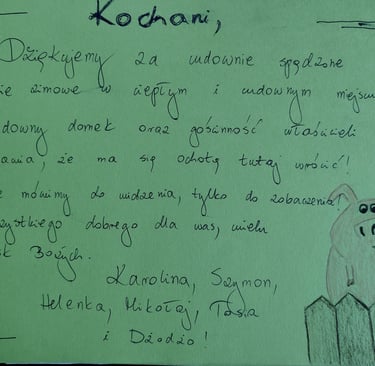 Kochani,
Dziękujemy za cudownie spędzone
ie zimowe w ciepłym i cudownym miejscu
downy domek oraz gościnność właścicieli
awia, że ma się ochotę tutaj wrócić!
e mówimy do widzenia, tylko do zobaczenia!
zystkiego dobrego dla was, wielu
sk Bożych.
Karolina, Szymon,
Helenka, Mikołaj, Tosia
i Dżodżo!